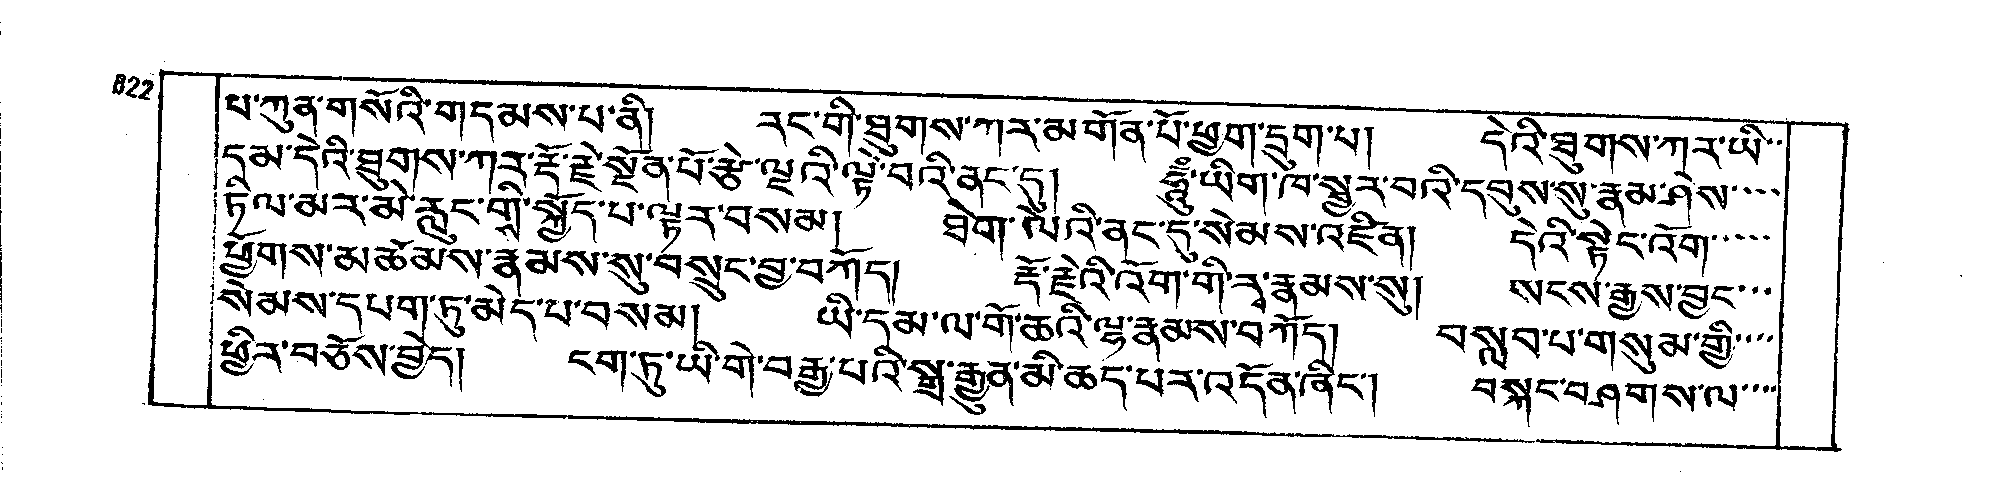 822
པ་ཀུན་གསོའི་གདམས་པ་ནི། རང་གི་ཐུགས་ཀར་མགོན་པོ་ཕྱག་དྲུག་པ། དེའི་ཐུགས་ཀར་ཡི་
དམ་དེའི་ཐུགས་ཀར་རྡོ་རྗེ་སྔོན་པོ་རྩེ་ལྔའི་ལྟེ་བའི་ནང་དུ། ཧཱུྃ་ཡིག་ཁ་སྦྱར་བའི་དབུས་སུ་རྣམ་ཤེས་
ཏིལ་མར་མེ་རླུང་གྲི་སྐྱོད་པ་ལྟར་བསམ། ཐིག་ལེའི་ནང་དུ་སེམས་འཛིན། དེའི་སྟེང་འོག་
ཕྱོགས་མཚོམས་རྣམས་སུ་བསྲུང་བྱ་བཀོད། རྡོ་རྗེའི་འོག་གི་རྭ་རྣམས་སུ། སངས་རྒྱས་བྱང་
སེམས་དཔག་ཏུ་མེད་པ་བསམ། ཡི་དམ་ལ་གོ་ཆའི་ལྷ་རྣམས་བཀོད། བསླབ་པ་གསུམ་གྱི་
ཕྱིར་བཅོས་བྱེད། ངག་ཏུ་ཡི་གེ་བརྒྱ་པའི་སྒྲ་རྒྱུན་མི་ཆད་པར་འདོན་ཞིང་། བསྐང་བཤགས་ལ་